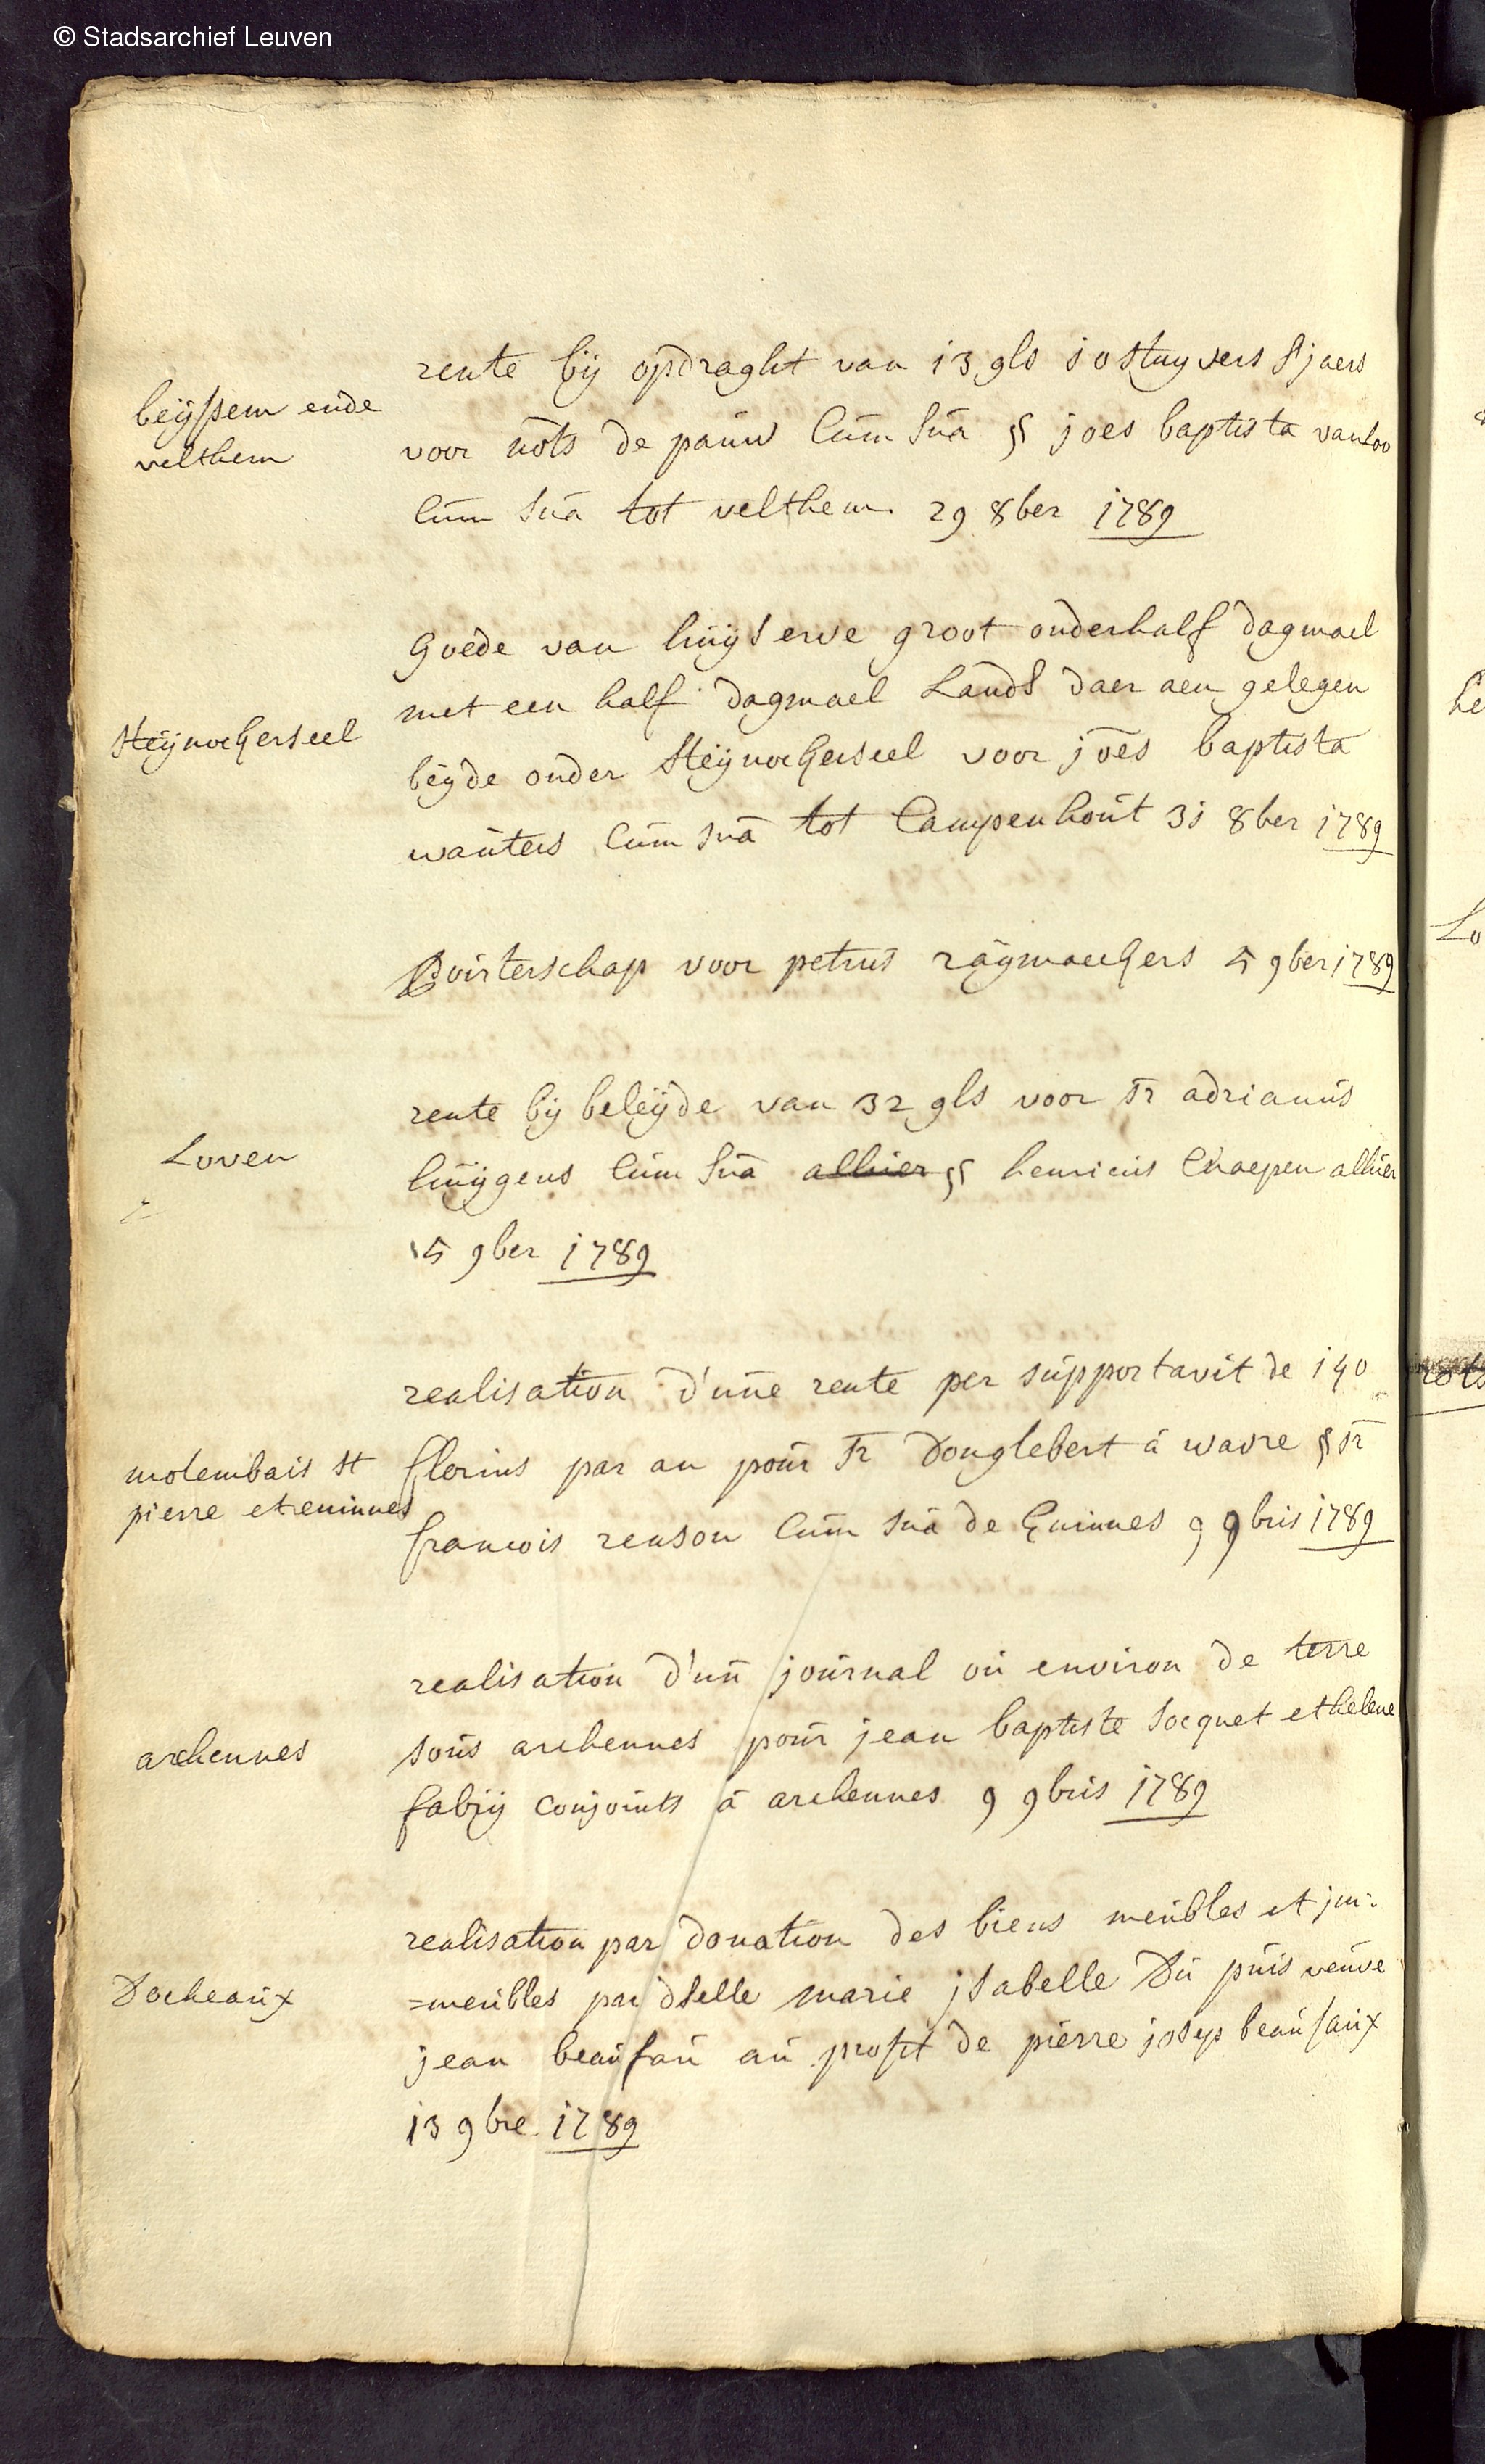 © Stadsarchief Leuven
beijssem ende
velthem
rente bij opdraght van 13 gls 10 stuyvers sjaers
voor nots de pauw cum sua § joes baptista vanloo
cum sua tot velthem 29 8ber 1789
Steijnockerseel
Goede van huijs erve groot onderhalf dagmael
met een half dagmael Lands daer aen gelegen
beijde onder Steijnockerseel voor joes baptista
wauters cum sua tot Campenhout 31 8ber 1789
Poirterschap voor petrus raijmaekers 5 9ber 1789
Loven
rente bij beleijde van 32 gls voor Sr adrianus
huijgens cum sua alhier § henricus Craepen alhier
5 9ber 1789
molembais St
pierre et eninnes
realisation d'une rente per supportavit de 140
florins par an pour Sr Donglebert á wavre § Sr
francois renson cum sua de Eninnes 9 9bris 1789
archennes
realisation d'un journal ou environ de terre
sous archennes pour jean baptiste Socquet et helene
fabrij conjoints á archennes 9 9bris 1789
Docheaux
realisation par donation des biens meubles et jm:
=meubles par dselle marie jsabelle Du puis veuve
jean beaufau au profit de pierre josep beaufaux
13 9bre 1789